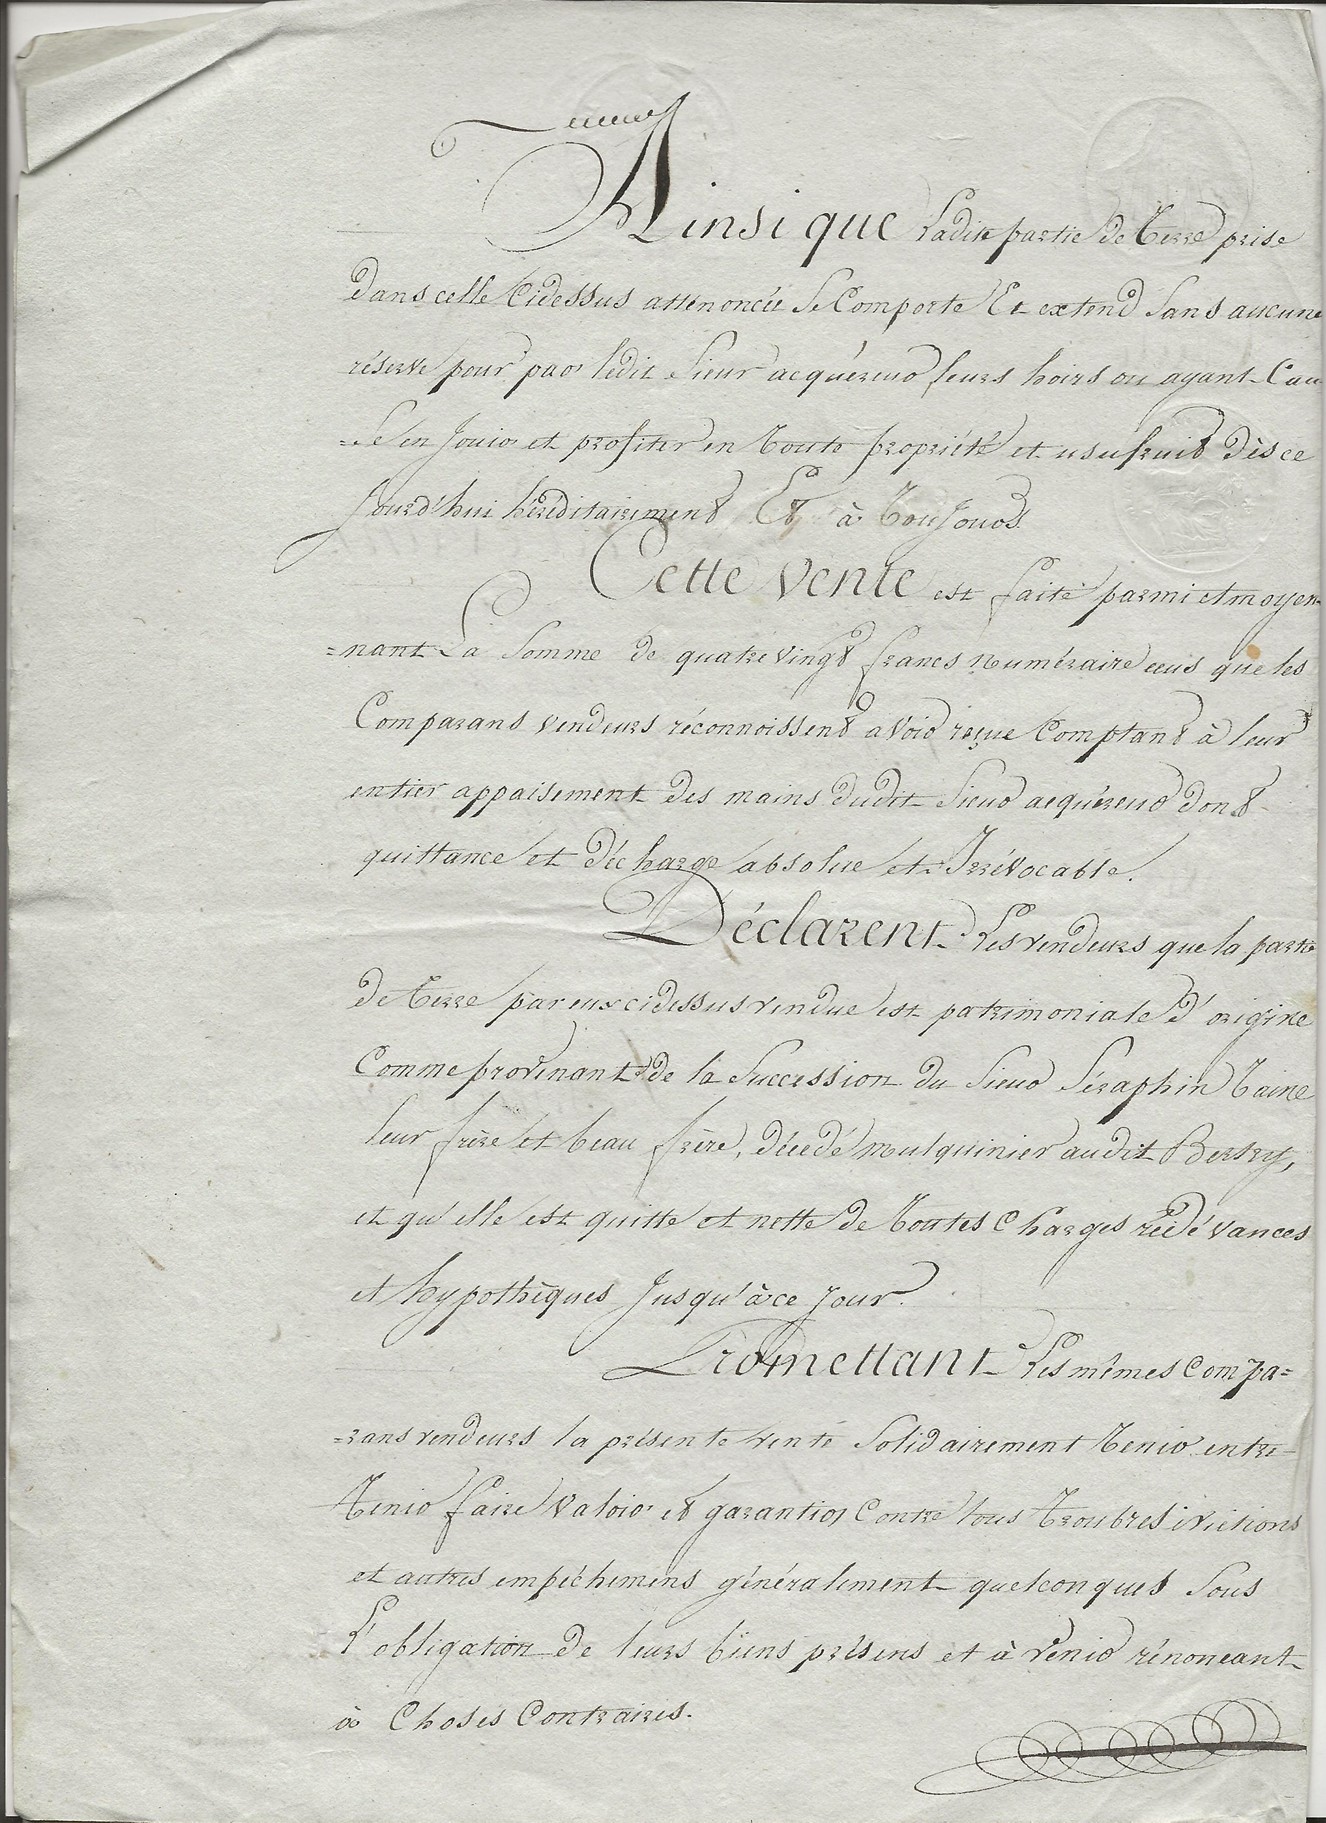 Ainsi que Ladite partie de Terre prise
dans celle Cidessus attenoncée Se Comporte Et extend Sans aucune
réserve pour par ledit Sieur acquéreur, leurs hoirs ou ayant-Cau
=se en Jouir et profiter en Toute propriété et usufruit Dès ce
Jourd'hui héréditairement Et à Toujours.
Cette vente est faite parmi et moyen=
=nant La Somme de quatre vingt francs numéraire ceus que les
Comparans vendeurs réconnoissent avoir reçue Comptant à leur
entier appaisement des mains dudit Sieur acquéreur dont
quittance et décharge absolue et Irrévocable.
Déclarent Les vendeurs que la partie
de Terre par eux cidessus vendue est patrimoniale d'origine
Comme provenant de la Succession du Sieur Séraphin Taine
leur frère et beau frère, décédé mulquinier audit Bertry,
et qu'elle est quitte et nette de Toutes Charges rédévances
et hypothèques Jusqu'à ce Jour.
Promettant Les mêmes Compa=
=rans vendeurs la présente vente Solidairement Tenir entre
Tenir faire Valoir et garantir Contre tous Troubles évictions
et autres empêchemens généralement quelconques Sous
L'obligation de leurs biens présens et à venir rénoncant
à Choses Contraires.